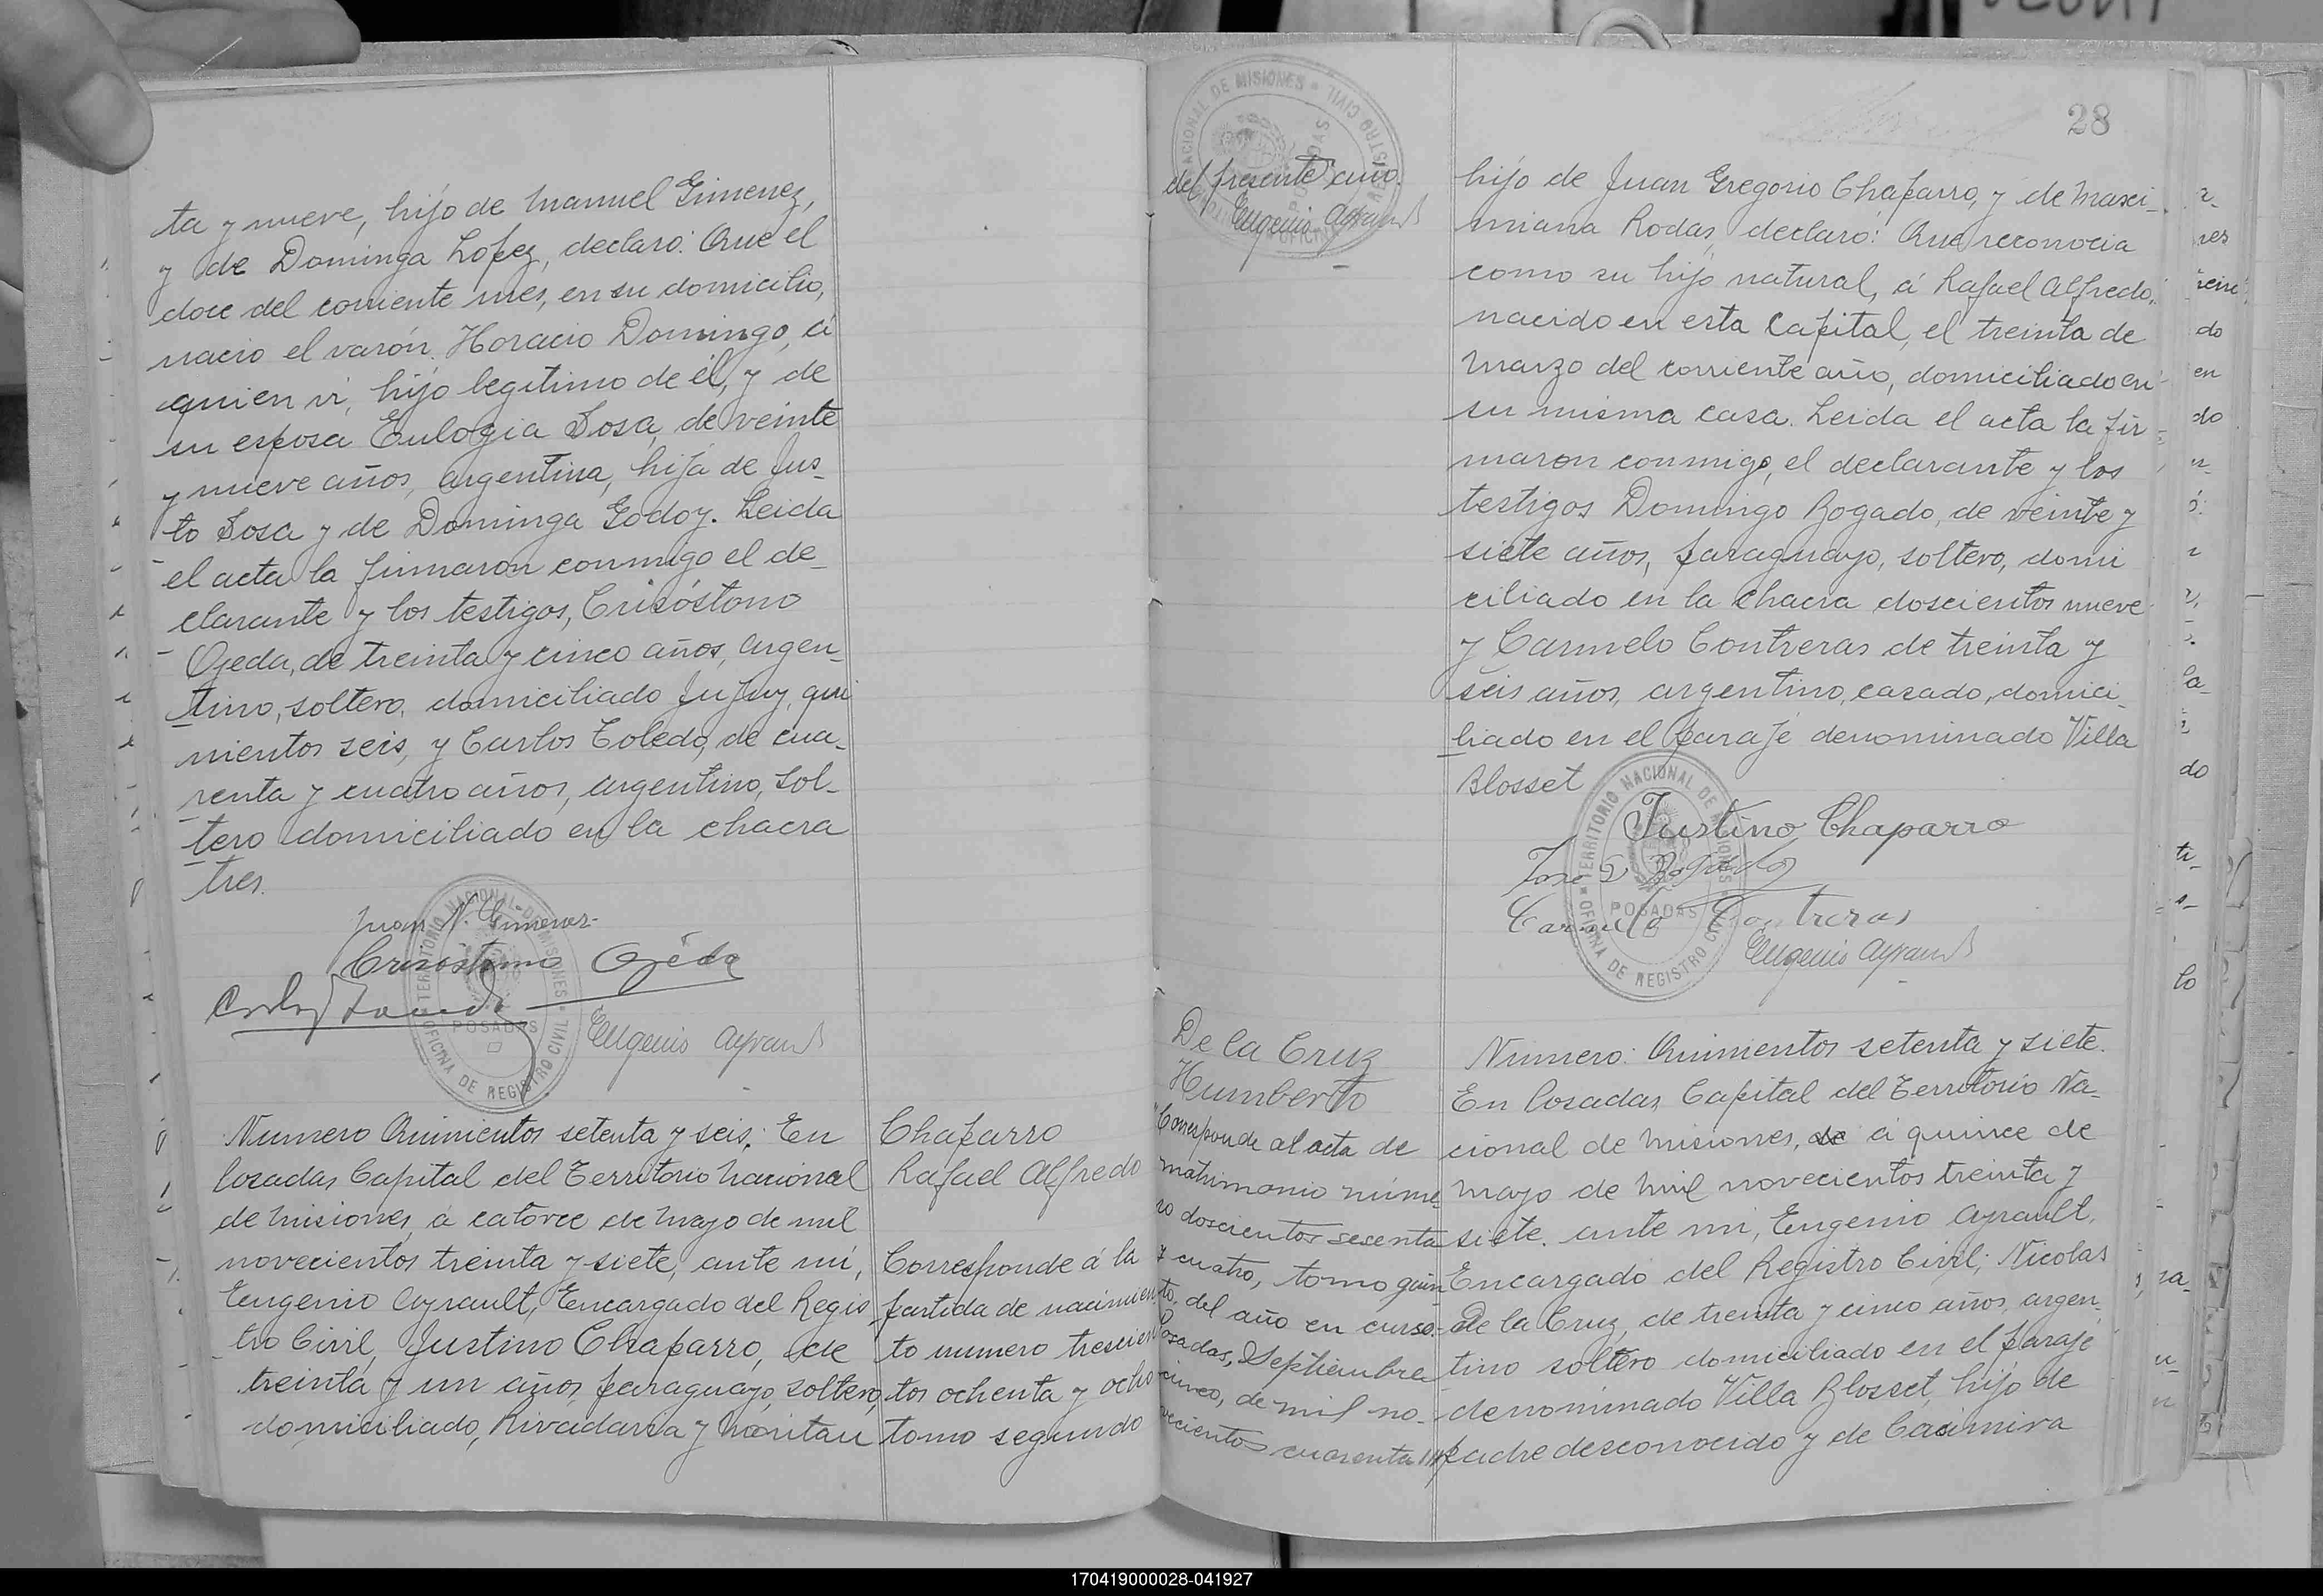 ta y nueve, hijo de Manuel Gimenez,
y de Dominga Lopez, declaró: Que el
doce del corriente mes, en su domicilio,
nació el varón Horacio Domingo, á
quien ví, hijo legítimo de él, y de
su esposa Eulogia Sosa, de veinte
y nueve años, argentina, hija de Jus_
to Sosa y de Dominga Godoy. Leida
el acta la firmaron conmigo el de_
clarante y los testigos, Crisóstomo
Ojeda, de treinta y cinco años, argen_
tino, soltero, domiciliado Jujuy, qui
nientos seis, y Carlos Toledo, de cua_
renta y cuatro años, argentino, sol_
tero domiciliado en la chacra
tres.
Juan N. Gimenez
Crisóstomo Ojeda
Eugenio Ayrault
TERRITORIO NACIONAL DE MISIONES
POSADAS
OFICINA DE REGISTRO CIVIL
Numero Quinientos setenta y seis. En
Posadas Capital del Territorio Nacional
de Misiones, á catorce de Mayo de mil
novecientos treinta y siete, ante mí,
Eugenio Ayrault, Encargado del Regis
tro Civil, Justino Chaparro, de
treinta y un años, paraguayo, soltero,
domiciliado, Rivadavia y
Chaparro
Rafael Alfredo
Corresponde á la
partida de nacimien
to numero trescien
tos ochenta y ocho
tomo segundo
del presente año.
Eugenio Ayrault
NACIONAL DE MISIONES
POSADAS
REGISTRO CIVIL
28
hijo de Juan Gregorio Chaparro, y de Maxi_
miana Rodas, declaró: Que reconocia
como su hijo natural, á Rafael Alfredo,
nacido en esta Capital, el treinta de
Marzo del corriente año, domiciliado en
su misma casa. Leida el acta la fir
maron conmigo, el declarante y los
testigos Domingo Bogado, de veinte y
siete años, paraguayo, soltero, domi
ciliado en la chacra doscientos nueve
y Carmelo Contreras de treinta y
seis años, argentino, casado, domici_
liado en el paraje denominado Villa
Blosset
Justino Chaparro
José D Bogado
Carmelo Contreras
Eugenio Ayrault
TERRITORIO NACIONAL DE MISIONES
POSADAS
OFICINA DE REGISTRO CIVIL
De la Cruz
Humberto
Corresponde al acta de
matrimonio núme_
ro doscientos sesenta
y cuatro, tomo quin
to, del año en curso.
Posadas, Septiembre
cinco, de mil no_
vecientos cuarenta
Numero: Quinientos setenta y siete.
En Posadas Capital del Territorio Na_
cional de Misiones, de á quince de
Mayo de Mil novecientos treinta y
siete. ante mi, Eugenio Ayrault,
Encargado del Registro Civil; Nicolas
De la Cruz, de treinta y cinco años, argen_
tino soltero domiciliado en el paraje
denominado Villa Blosset, hijo de
padre desconocido y de Casimira
170419000028-041927